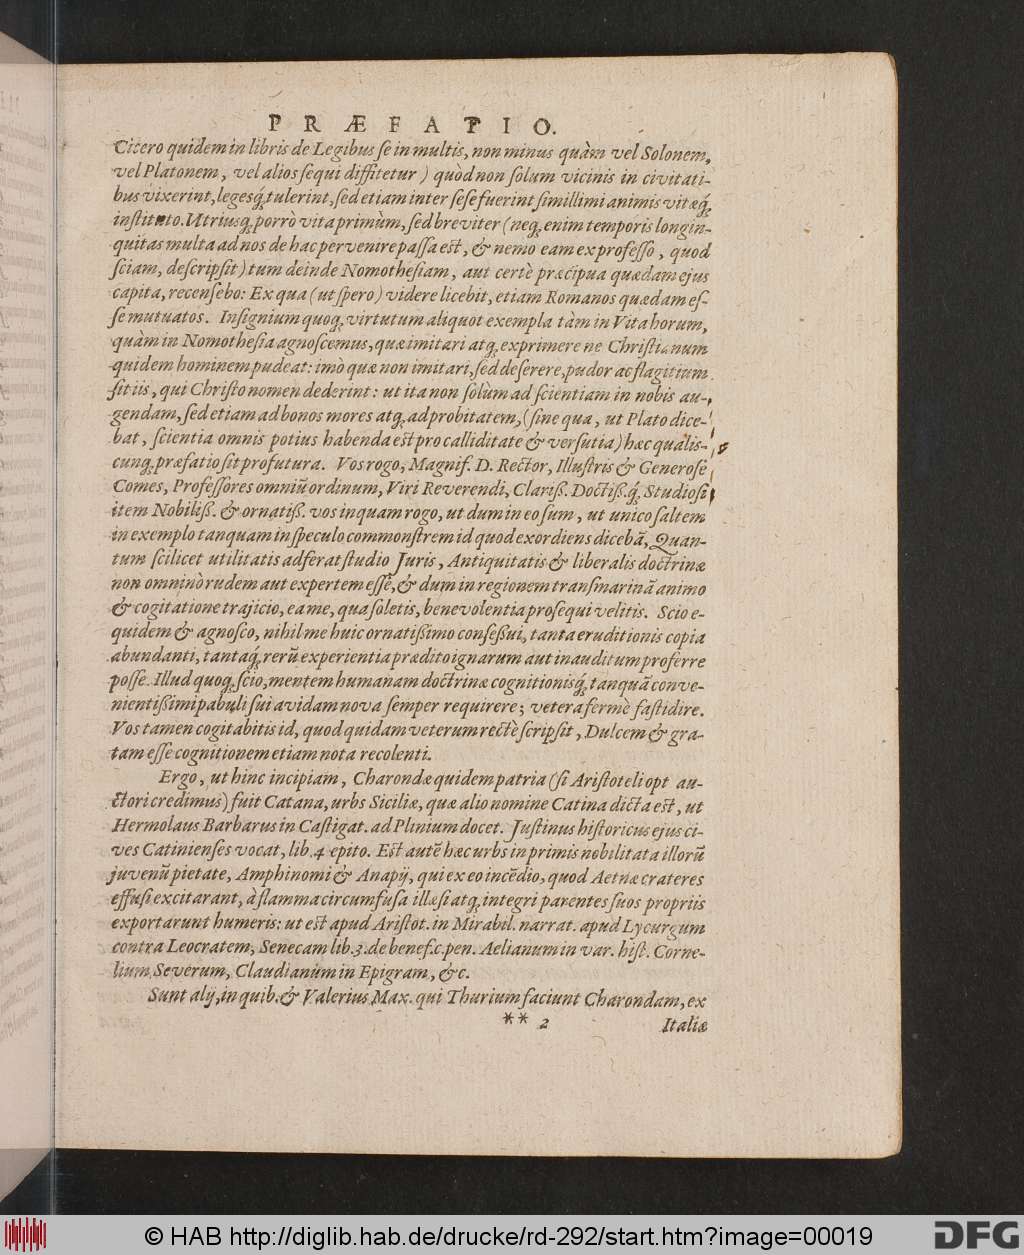 PRÆFATIO.
Cicero quidem in libris de Legibus se in multis, non minus quàm vel Solonem,
vel Platonem, vel alios sequi diffitetur) quòd non solum vicinis in civitati-
bus vixerint, legesq́; tulerint, sed etiam inter sese fuerint simillimi animis vitæq́;
instituto. Utriusq; porrò vita primùm, sed breviter (neq; enim temporis longin-
quitas multa ad nos de hac pervenire passa est, & nemo eam ex professo, quod
sciam, descripsit) tum deinde Nomothesiam, aut certè præcipua quædam ejus
capita, recensebo: Ex qua (ut spero) videre licebit, etiam Romanos quædam es-
se mutuatos. Insignium quoq; virtutum aliquot exempla tàm in Vita horum,
quàm in Nomothesia agnoscemus, quæ imitari atq; exprimere ne Christianum
quidem hominem pudeat: imò quæ non imitari, sed deserere, pudor ac flagitium
sit iis, qui Christo nomen dederint: ut ita non solùm ad scientiam in nobis au-
gendam, sed etiam ad bonos mores atq; ad probitatem, (sine qua, ut Plato dice-
bat, scientia omnis potius habenda est pro calliditate & versutia) hæc qualis-
cunq; præfatio sit profutura. Vos rogo, Magnif. D. Rector, Illustris & Generose
Comes, Professores omniū ordinum, Viri Reverendi, Clariß. Doctiß. q́; Studiosi
item Nobiliß. & ornatiß. vos inquam rogo, ut dum in eo sum, ut unico saltem
in exemplo tanquam in speculo commonstrem id quod exordiens dicebā, Quan-
tum scilicet utilitatis adferat studio Juris, Antiquitatis & liberalis doctrinæ
non omninò rudem aut expertem esse, & dum in regionem transmarinā animo
& cogitatione trajicio, ea me, qua soletis, benevolentia prosequi velitis. Scio e-
quidem & agnosco, nihil me huic ornatißimo conseßui, tanta eruditionis copia
abundanti, tantaq́; rerū experientia prædito ignarum aut inauditum proferre
posse. Illud quoq; scio, mentem humanam doctrinæ cognitionisq́; tanquā conve-
nientißimi pabuli sui avidam nova semper requirere; vetera fermè fastidire.
Vos tamen cogitabitis id, quod quidam veterum rectè scripsit, Dulcem & gra-
tam esse cognitionem etiam nota recolenti.
Ergo, ut hinc incipiam, Charondæ quidem patria (si Aristoteli opt au-
ctori credimus) fuit Catana, urbs Siciliæ, quæ alio nomine Catina dicta est, ut
Hermolaus Barbarus in Castigat. ad Plinium docet. Justinus historicus ejus ci-
ves Catinienses vocat, lib. 4 epito. Est autē hæc urbs in primis nobilitata illorū
juvenū pietate, Amphinomi & Anapij, qui ex eo incēdio, quod Aetnæ crateres
effusi excitarant, à flamma circumfusa illæsi atq; integri parentes suos propriis
exportarunt humeris: ut est apud Aristot. in Mirabil. narrat. apud Lycurgum
contra Leocratem, Senecam lib. 3. de benef. c. pen. Aelianum in var. hist. Corne-
lium Severum, Claudianum in Epigram, &c.
Sunt alij, in quib. & Valerius Max. qui Thurium faciunt Charondam, ex
** 2 Italiæ
© HAB http://diglib.hab.de/drucke/rd-292/start.htm?image=00019
DFG